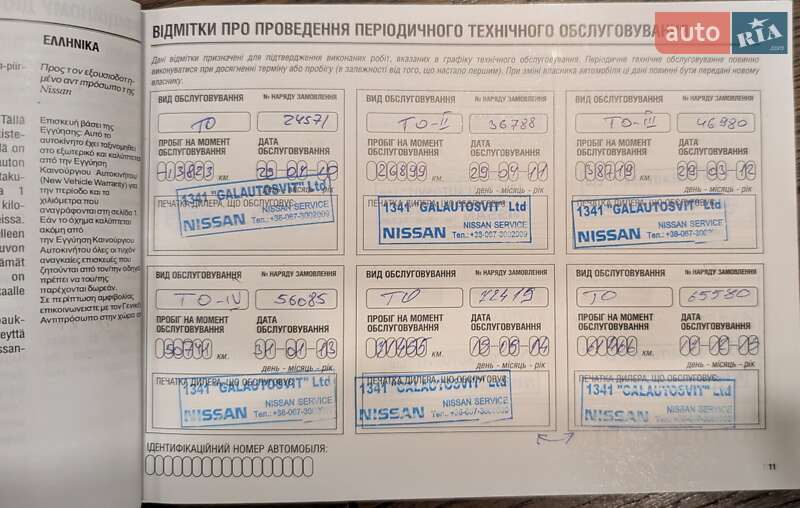 auto RIA .com
ΕΛΛΗΝΙΚΑ
Προς τον εξουσιοδοτη-
μένο αντιπρόσωπο της
Nissan
Επισκευή βάσει της
Εγγύησης: Αυτό το
αυτοκίνητο έχει ταξινομηθεί
στο εξωτερικό και καλύπτεται
από την Εγγύηση
Καινούργιου Αυτοκινήτου
(New Vehicle Warranty) για
την περίοδο και τα
χιλιόμετρα που
αναγράφονται στη σελίδα 1.
Εάν το όχημα καλύπτεται
ακόμη από
την Εγγύηση Καινούργιου
Αυτοκινήτου όλες οι τυχόν
αναγκαίες επισκευές που
ζητούνται από τον/την οδηγό
πρέπει να του/της
παρέχονται δωρεάν.
Σε περίπτωση αμφιβολίας
επικοινωνείστε με τον Γενικό
Αντιπρόσωπο στην χώρα σας
ВІДМІТКИ ПРО ПРОВЕДЕННЯ ПЕРІОДИЧНОГО ТЕХНІЧНОГО ОБСЛУГОВУВАННЯ
Дані відмітки призначені для підтвердження виконаних робіт, вказаних в графіку технічного обслуговування. Періодичне технічне обслуговування повинно
виконуватися при досягненні терміну або пробігу (в залежності від того, що настало першим). При зміні власника автомобіля ці дані повинні бути передані новому
власнику.
ВИД ОБСЛУГОВУВАННЯ № НАРЯДУ ЗАМОВЛЕННЯ
ТО 24571
ПРОБІГ НА МОМЕНТ ОБСЛУГОВУВАННЯ ДАТА ОБСЛУГОВУВАННЯ
13823 км.
ПЕЧАТКА ДИЛЕРА, ЩО ОБСЛУГОВУЄ:
1341 "GALAUTOSVIT" Ltd
NISSAN NISSAN SERVICE
Тел.: +38-067-3002009
ВИД ОБСЛУГОВУВАННЯ № НАРЯДУ ЗАМОВЛЕННЯ
ТО-II 36788
ПРОБІГ НА МОМЕНТ ОБСЛУГОВУВАННЯ ДАТА ОБСЛУГОВУВАННЯ
26899 км.
день - місяць - рік
1341 "GALAUTOSVIT" Ltd
NISSAN NISSAN SERVICE
Тел.: +38-067-3002009
ВИД ОБСЛУГОВУВАННЯ № НАРЯДУ ЗАМОВЛЕННЯ
ТО-III 46980
ПРОБІГ НА МОМЕНТ ОБСЛУГОВУВАННЯ ДАТА ОБСЛУГОВУВАННЯ
38719 км. 28-03-12
день - місяць - рік
1341 "GALAUTOSVIT" Ltd
NISSAN NISSAN SERVICE
Тел.: +38-067-3002009
ВИД ОБСЛУГОВУВАННЯ № НАРЯДУ ЗАМОВЛЕННЯ
ТО-IV 56085
ПРОБІГ НА МОМЕНТ ОБСЛУГОВУВАННЯ ДАТА ОБСЛУГОВУВАННЯ
50791 км. 31-01-13
день - місяць - рік
ПЕЧАТКА ДИЛЕРА, ЩО ОБСЛУГОВУЄ:
1341 "GALAUTOSVIT" Ltd
NISSAN NISSAN SERVICE
Тел.: +38-067-3002009
ВИД ОБСЛУГОВУВАННЯ № НАРЯДУ ЗАМОВЛЕННЯ
ТО
ПРОБІГ НА МОМЕНТ ОБСЛУГОВУВАННЯ ДАТА ОБСЛУГОВУВАННЯ
км.
день - місяць - рік
ПЕЧАТКА ДИЛЕРА, ЩО ОБСЛУГОВУЄ:
1341 "GALAUTOSVIT" Ltd
NISSAN NISSAN SERVICE
Тел.: +38-067-3002009
ВИД ОБСЛУГОВУВАННЯ № НАРЯДУ ЗАМОВЛЕННЯ
ТО 65580
ПРОБІГ НА МОМЕНТ ОБСЛУГОВУВАННЯ ДАТА ОБСЛУГОВУВАННЯ
км.
день - місяць - рік
ПЕЧАТКА ДИЛЕРА, ЩО ОБСЛУГОВУЄ:
1341 "GALAUTOSVIT" Ltd
NISSAN NISSAN SERVICE
Тел.: +38-067-3002009
ІДЕНТИФІКАЦІЙНИЙ НОМЕР АВТОМОБІЛЯ:
11